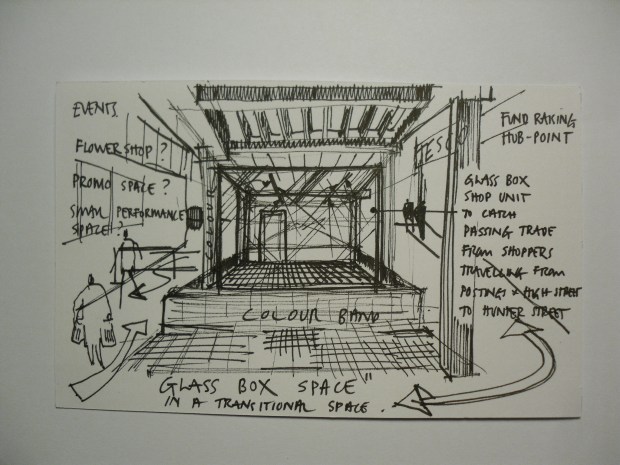 EVENTS.
FLOWER SHOP ?
PROMO SPACE ?
SMALL PERFORMANCE
SPACE ?
TESCO
FUND RAISING
HUB-POINT
GLASS BOX
SHOP UNIT
TO CATCH
PASSING TRADE
FROM SHOPPERS
TRAVELLING FROM
POSTINGS & HIGH STREET
TO HUNTER STREET
COLOUR BAND
GLASS BOX SPACE"
IN A TRANSITIONAL SPACE.